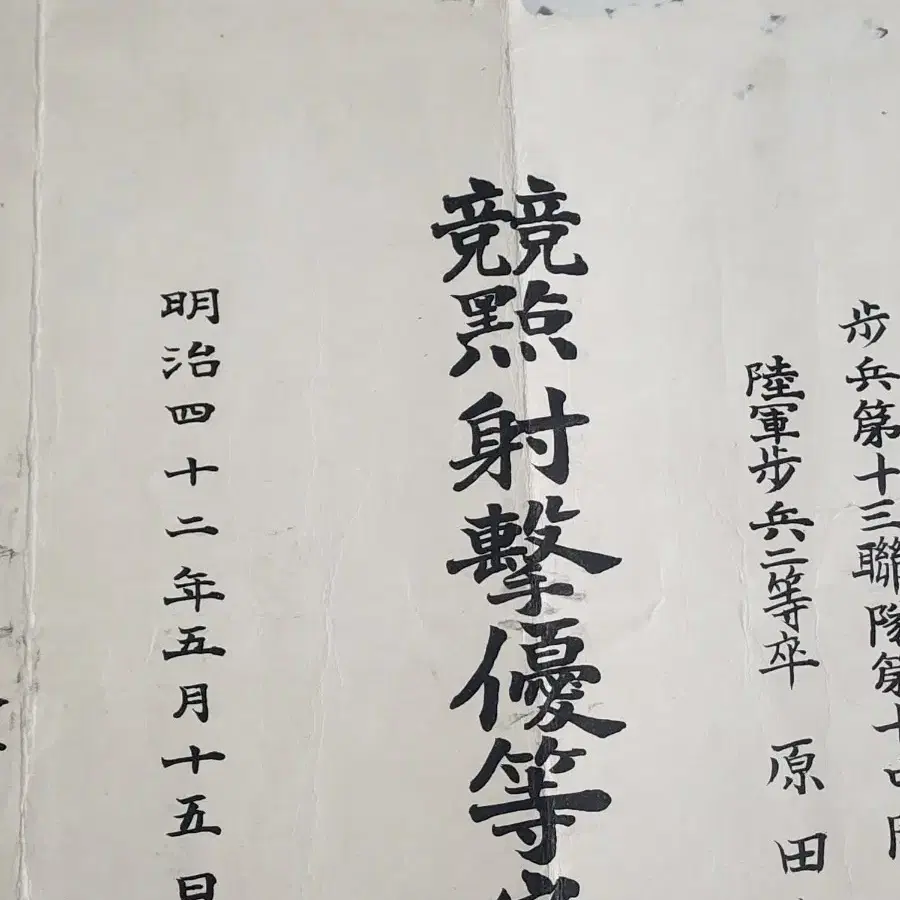 歩兵第十三聯隊第十
陸軍歩兵二等卒 原田
競點射擊優等
明治四十二年五月十五日